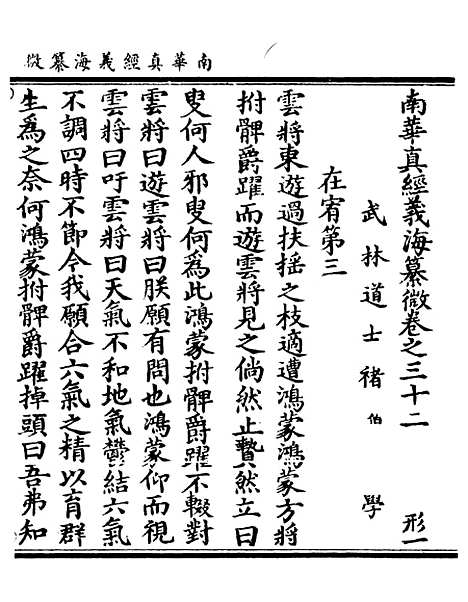 南華真經義海纂微
南華真經義海纂微卷之三十二 形一
武林道士褚伯學
在宥第三
雲將東遊過扶摇之枝適遭鴻蒙鴻蒙方將
拊髀爵躍而遊雲將見之倘然止贄然立曰
叟何人邪叟何為此鴻蒙拊髀爵躍不輟對
雲將曰遊雲將曰朕願有問也鴻蒙仰而視
雲將曰吁雲將曰天氣不和地氣鬱結六氣
不調四時不節今我願合六氣之精以育群
生為之奈何鴻蒙拊髀爵躍掉頭曰吾弗知